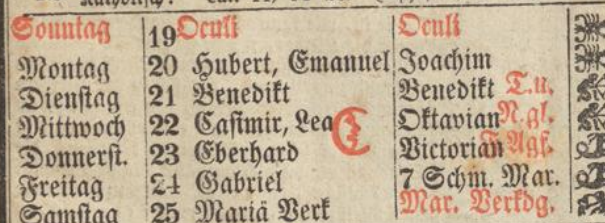 Sonntag 19 Oculi Oculi
Montag 20 Hubert, Emanuel Joachim
Dienſtag 21 Benedikt Benedikt T.u.
Mittwoch 22 Caſimir, Lea Oktavian N.gl.
Donnerſt. 23 Eberhard Victorian F.Agſ.
Freitag 24 Gabriel 7 Schm. Mar.
Samſtag 25 Mariä Verk Mar. Verkdg.